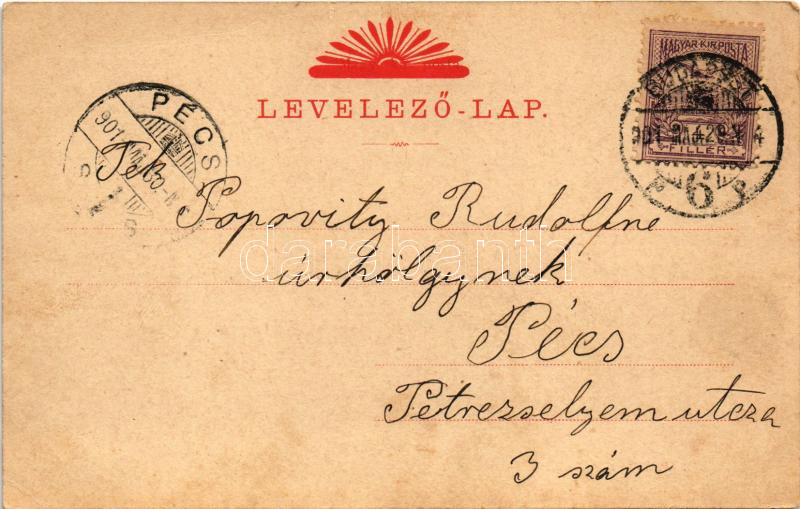 LEVELEZŐ-LAP.
MAGYAR KIR. POSTA
FILLÉR
BUDAPEST
6
PÉCS
Tek
Popovity Rudolfne
úrhölgynek
Pécs
Petrezselyem utcza
3 szám
darabanth